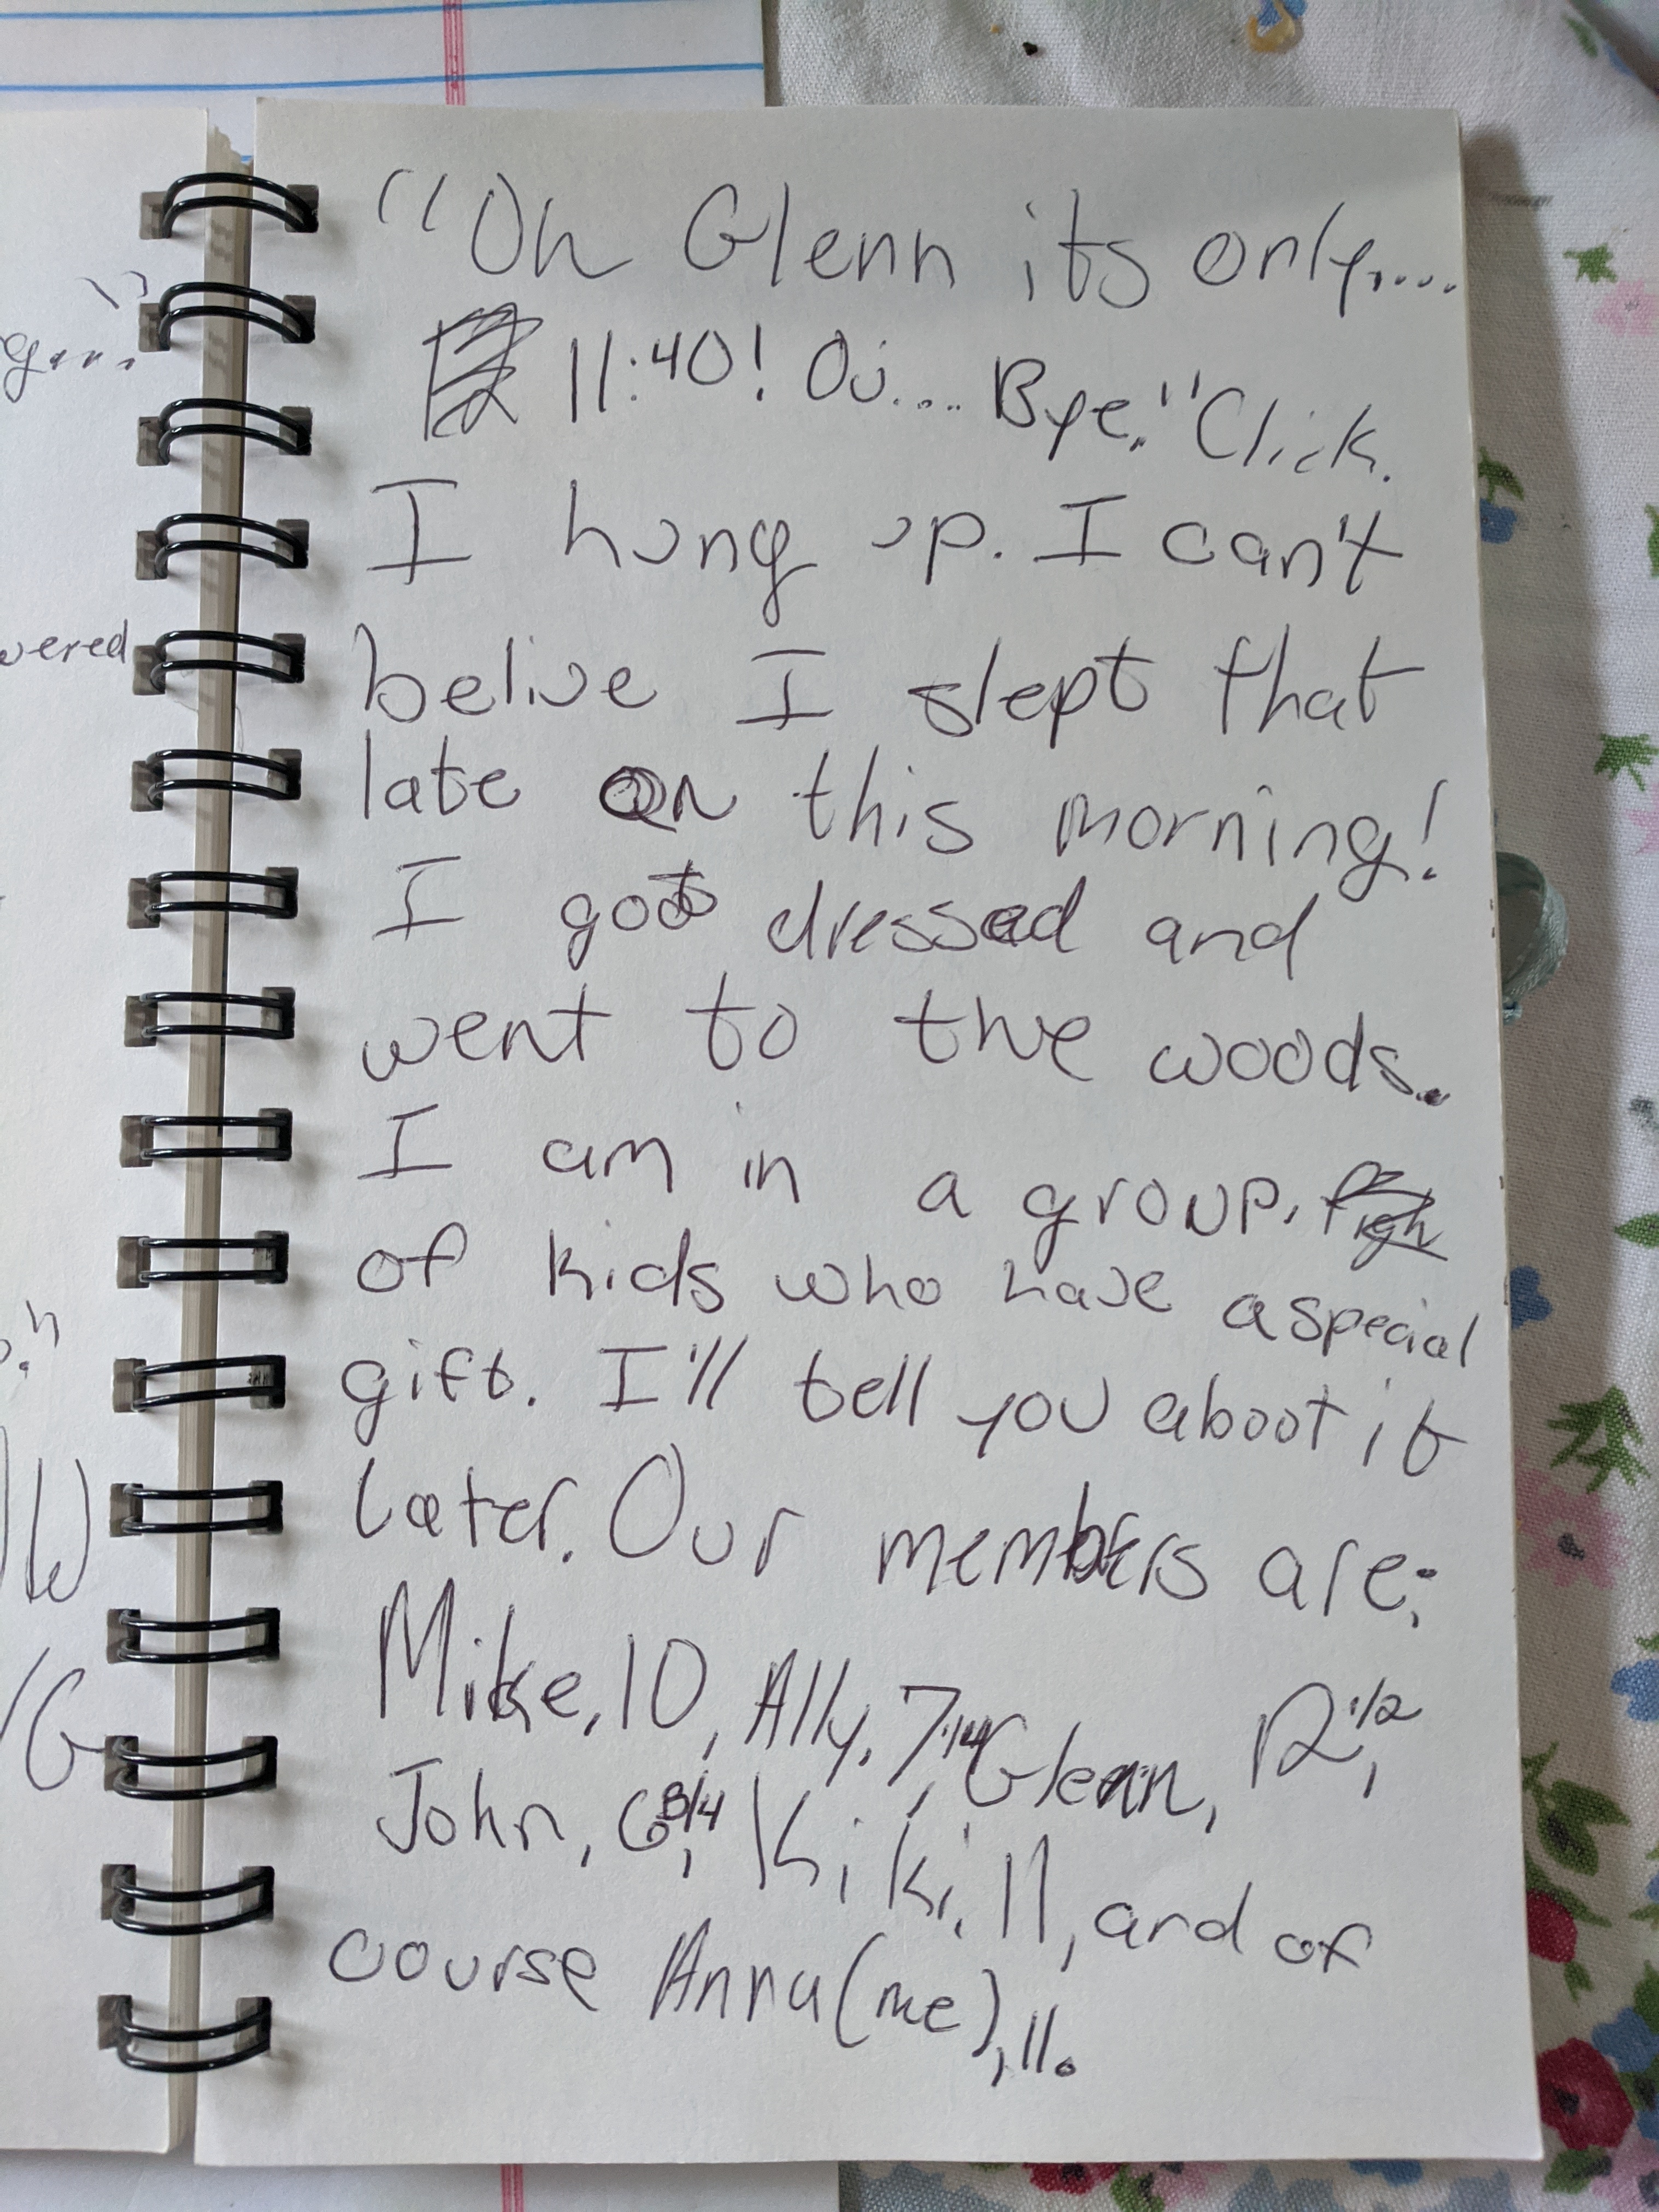 "Oh Glenn its only....
11:40! Oi.... Bye." Click.
I hung up. I can't
belive I slept that
late on this morning!
I got dressed and
went to the woods..
I am in a group,
of kids who have a special
gift. I'll tell you about it
later. Our members are:
Mike, 10, Ally, 7 1/4, Glenn, 12 1/2,
John, 6 3/4, Kiki, 11, and of
course Anna (me), 11.
wered